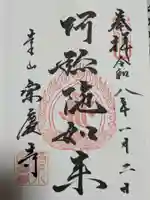 奉拝
令和八年一月六日
阿弥陀如来
宗慶寺